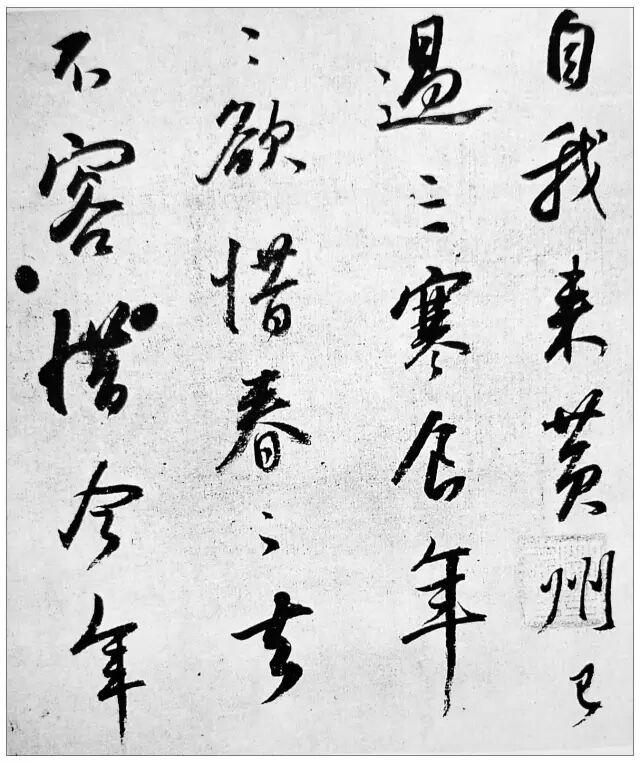 自我来黄州已
過三寒食年
〻欲惜春〻去
不容惜今年